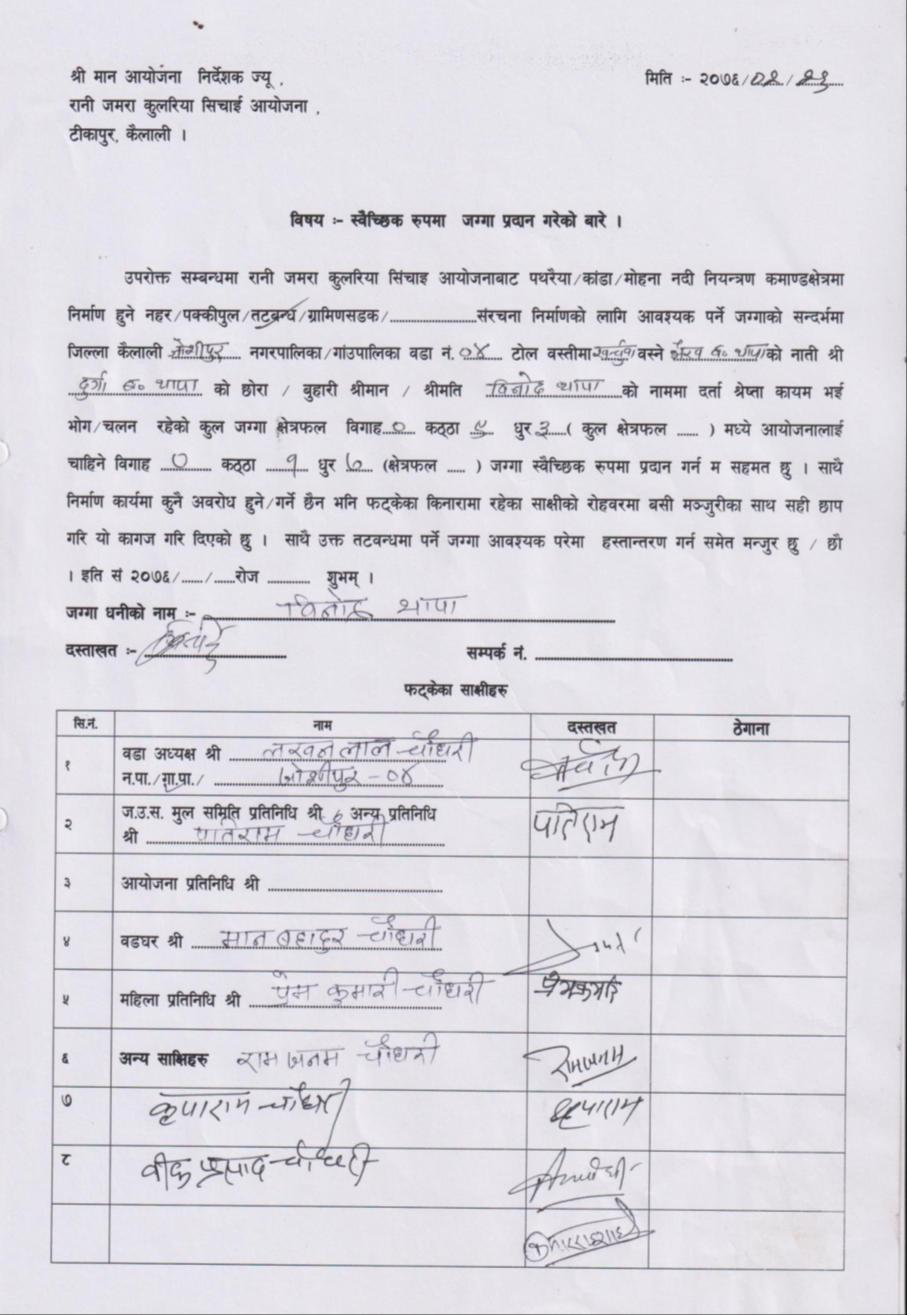 श्री मान आयोजना निर्देशक ज्यू ,
मिति :- २०७६/०२/२३
रानी जमरा कुलरिया सिचाई आयोजना ,
टीकापुर, कैलाली ।
विषय :- स्वैच्छिक रुपमा जग्गा प्रदान गरेको बारे ।
उपरोक्त सम्बन्धमा रानी जमरा कुलरिया सिंचाइ आयोजनाबाट पथरैया/कांडा/मोहना नदी नियन्त्रण कमाण्डक्षेत्रमा
निर्माण हुने नहर/पक्कीपुल/तटबन्ध/ग्रामिणसडक/........................संरचना निर्माणको लागि आवश्यक पर्ने जग्गाको सन्दर्भमा
जिल्ला कैलाली जोशीपुर नगरपालिका/गांउपालिका वडा नं. ०४ टोल वस्तीमा वस्ने ब. थापाको नाती श्री
दुर्गा ब. थापा को छोरा / बुहारी श्रीमान / श्रीमति विनोद थापा को नाममा दर्ता श्रेष्ता कायम भई
भोग/चलन रहेको कुल जग्गा क्षेत्रफल विगाह ० कठ्ठा ९ धुर ३ ( कुल क्षेत्रफल ...... ) मध्ये आयोजनालाई
चाहिने विगाह ० कठ्ठा १ धुर ७ (क्षेत्रफल ..... ) जग्गा स्वैच्छिक रुपमा प्रदान गर्न म सहमत छु । साथै
निर्माण कार्यमा कुनै अवरोध हुने/गर्ने छैन भनि फट्केका किनारामा रहेका साक्षीको रोहवरमा बसी मञ्जुरीका साथ सही छाप
गरि यो कागज गरि दिएको छु । साथै उक्त तटवन्धमा पर्ने जग्गा आवश्यक परेमा हस्तान्तरण गर्न समेत मन्जुर छु / छौ
। इति सं २०७६/....../......रोज ............ शुभम् ।
जग्गा धनीको नाम :- विनोद थापा
दस्ताखत :-
सम्पर्क नं. ........................
फट्केका साक्षीहरु
सि.नं. नाम दस्तखत ठेगाना
१ वडा अध्यक्ष श्री लखनलाल चौधरी
न.पा./गा.पा./ जोशीपुर - ०४
२ ज.उ.स. मुल समिति प्रतिनिधि श्री ६ अन्य प्रतिनिधि
श्री पातिराम चौधरी पातिराम
३ आयोजना प्रतिनिधि श्री ........................
४ वडघर श्री मान बहादुर चौधरी
५ महिला प्रतिनिधि श्री प्रेम कुमारी चौधरी प्रेमकुमारी
६ अन्य साक्षिहरु राम जनम चौधरी रामजनम
७ कृपाराम चौधरी कृपाराम
८ प्रसाद चौधरी